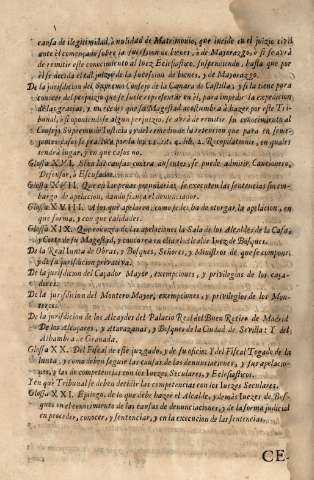 causa de ilegitimidad, à nulidad de Matrimonio, que incide en el juizio civil
ante el començado sobre la sucession de bienes, ò de Mayorazgo, ò si se avrà
de remitir este conocimiento al Iuez Eclesiastico, suspendiendo, hasta que por
èl se decida el tal juizio de la sucession de bienes, y de Mayorazgo.
De la jurisdicion del Supremo Consejo de la Camara de Castilla, y si la tiene para
conocer del perjuizio que se suele representar en èl, para impedir la expedicion
de las gracias, y mercedes que su Magestad acostumbra à hazer por este Tribunal,
ò si oponiendose algun perjuizio, se avrà de remitir su conocimiento al
Consejo Supremo de Iusticia, y del remedio de la retencion que para en semejantes
casos se practica por la ley lib. 2. Recopilationis, en quales
tendrà lugar, y en que casos no.
Glossa XVI. Si en las causas contra ausentes, se puede admitir Causionero,
Defensor, ò Escusador.
Glossa XVII. Que en las penas pecuniarias, se executen las sentencias sin embargo
de apelacion, dando fiança el denunciador.
Glossa XVIII. A los que apelaren, como se les ha de otorgar la apelacion, en
que forma, y con que calidades.
Glossa XIX. Que conozca de las apelaciones la Sala de los Alcaldes de la Casa,
y Corte de su Magestad, y concurra en ella el Alcalde Iuez de Bosques.
De la Real Iunta de Obras, y Bosques, Señores, y Ministros de que se compone,
y de su jurisdicion privativa.
De la jurisdicion del Caçador Mayor, exempciones, y privilegios de los caçadores.
De la jurisdicion del Montero Mayor, exempciones, y privilegios de los Monteros.
De la jurisdicion de los Alcaydes del Palacio Real del Buen Retiro de Madrid.
De los Alcaçares, y Atarazanas, y Bosques de la Ciudad de Sevilla: Y del
Alhambra de Granada.
Glossa XX. Del Fiscal de este juzgado, y de su oficio: Y del Fiscal Togado de la
Iunta, y como deben seguir las causas de las denunciaciones, y sus apelaciones,
y las de competencias con los Iuezes Seculares, y Eclesiasticos.
Y en que Tribunal se deben decidir las competencias con los Iuezes Seculares.
Glossa XXI. Epilogo de lo que debe hazer el Alcalde, y demàs Iuezes de Bosques
en el conocimiento de las causas de denunciaciones, y de la forma judicial
en proceder, conocer, y sentenciar, y en la execucion de las sentencias.
CE-